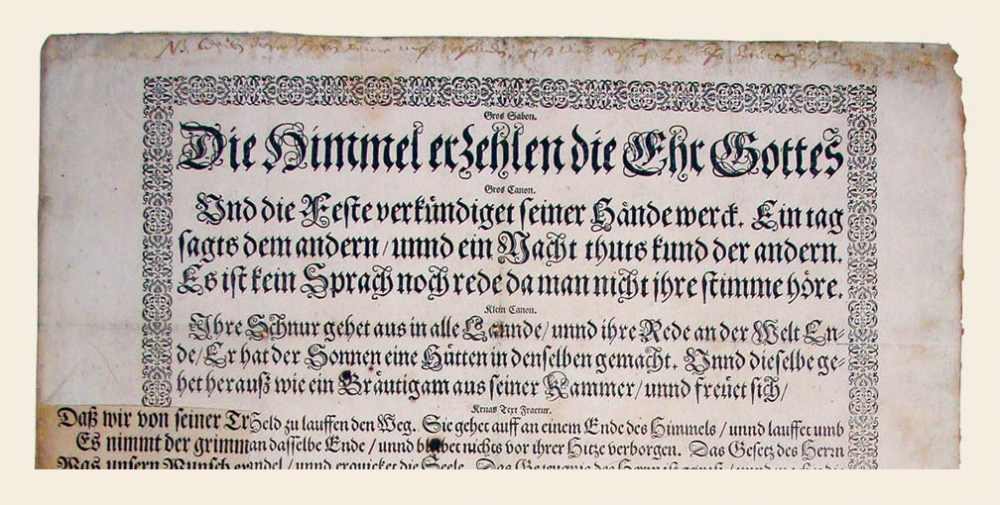 Gros Sabon.
Die Himmel erzehlen die Ehr Gottes
Gros Canon.
Vnd die Feste verkündiget seiner Hände werck. Ein tag
sagts dem andern/ unnd ein Nacht thuts kund der andern.
Es ist kein Sprach noch rede da man nicht jhre stimme höre.
Klein Canon.
Ihre Schnur gehet aus in alle Lannde/ unnd ihre Rede an der Welt En-
de/ Er hat der Sonnen eine Hütten in denselben gemacht. Unnd dieselbe ge-
het herauß wie ein Bräutigam aus seiner Kammer/ unnd freuet sich/
Text Fractur.
Daß wir von seiner Tr Held zu lauffen den Weg. Sie gehet auff an einem Ende des Himmels/ unnd lauffet umb
Es nimmt der grimm an dasselbe Ende/ unnd bleibet nichts vor ihrer Hitze verborgen. Das Gesetz des Herrn
Was unsern Wunsch wandel/ unnd erquicket die Seele. Das